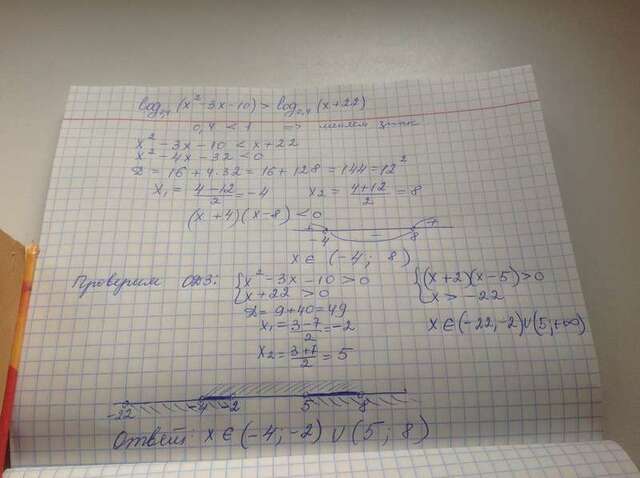 log₀,₄(x²-3x-10) > log₀,₄(x+22)
0,4 < 1 => меняем знак
x²-3x-10 < x+22
x²-4x-32 < 0
D = 16+4·32 = 16+128 = 144 = 12²
x₁ = (4-12)/2 = -4 x₂ = (4+12)/2 = 8
(x+4)(x-8) < 0
+ - +
-4 8
x ∈ (-4; 8)
Проверим ОДЗ: { x²-3x-10 > 0 { (x+2)(x-5) > 0
x+22 > 0 x > -22
D = 9+40 = 49
x₁ = (3-7)/2 = -2 x ∈ (-22,-2) ∪ (5;+∞)
x₂ = (3+7)/2 = 5
-22 -4 -2 5 8
Ответ: x ∈ (-4; -2) ∪ (5; 8)